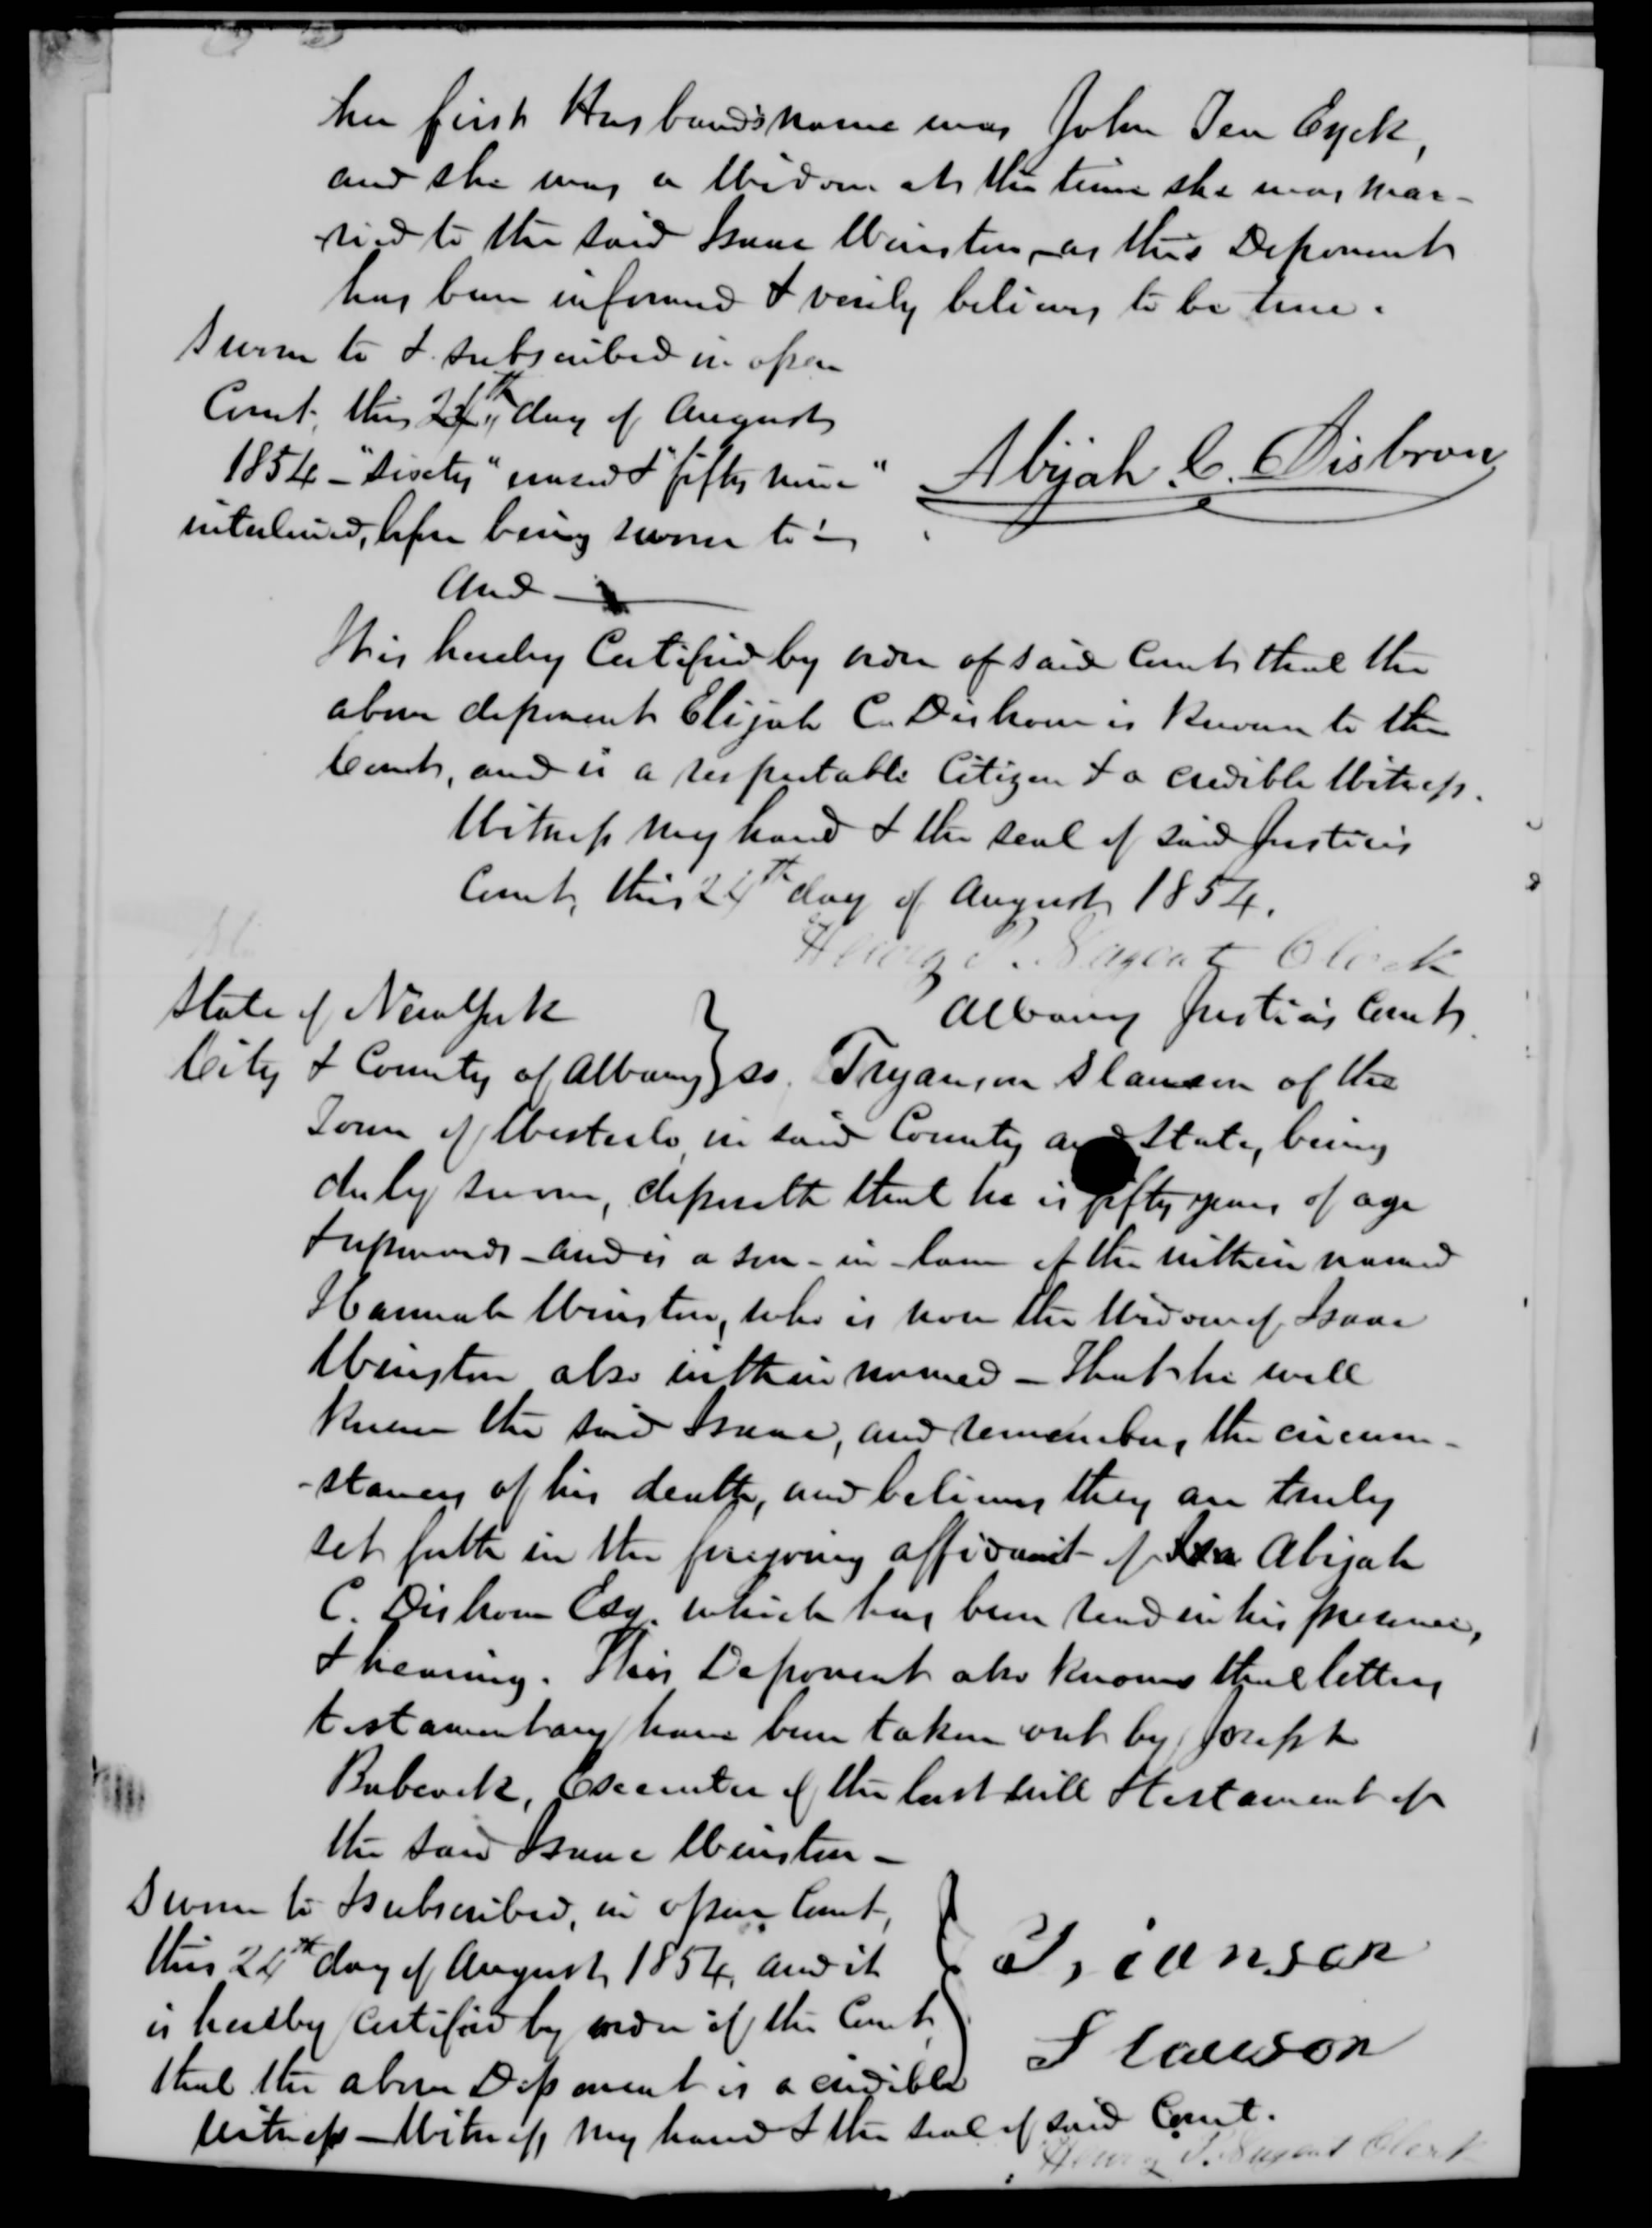 her first Husbands name was John Ten Eyck,
and she was a Widow at the time she was mar-
-ried to the said Isaac Winston, as this Deponent
has been informed & verily believes to be true.
Sworn to & subscribed in open
Court, this 24th day of August
1854 - "sixty" erased & "fifty nine"
interlined, before being sworn to
Abijah C. Disbrow
And
It is hereby Certified by order of said Court that the
above deponent Elijah C. Disbrow is known to the
Court, and is a respectable Citizen & a credible Witness.
Witness my hand & the seal of said Justices
Court, this 24th day of August 1854.
Henry Nugent Clerk
Albany Justices Court
State of New York
City & County of Albany } ss. Tryanson Slawson of the
Town of Westerlo, in said County and State, being
duly sworn, deposeth that he is fifty years of age
& upwards - and is a son-in-law of the within named
Hannah Winston, who is now the Widow of Isaac
Winston also within named - That he well
knew the said Isaac, and remembers the circum-
-stances of his death, and believes they are truly
set forth in the foregoing affidavit of Abijah
C. Disbrow Esq. which has been read in his presence,
& hearing. This Deponent also knows that letters
testamentary have been taken out by Joseph
Babcock, Executor of the last will & testament of
the said Isaac Winston -
Sworn to & subscribed, in open Court,
this 24th day of August, 1854, and it
is hereby certified by order of the Court,
that the above Deponent is a credible
witness - Witness my hand & the seal of said Court.
Trianson
Slawson
Henry Nugent Clerk